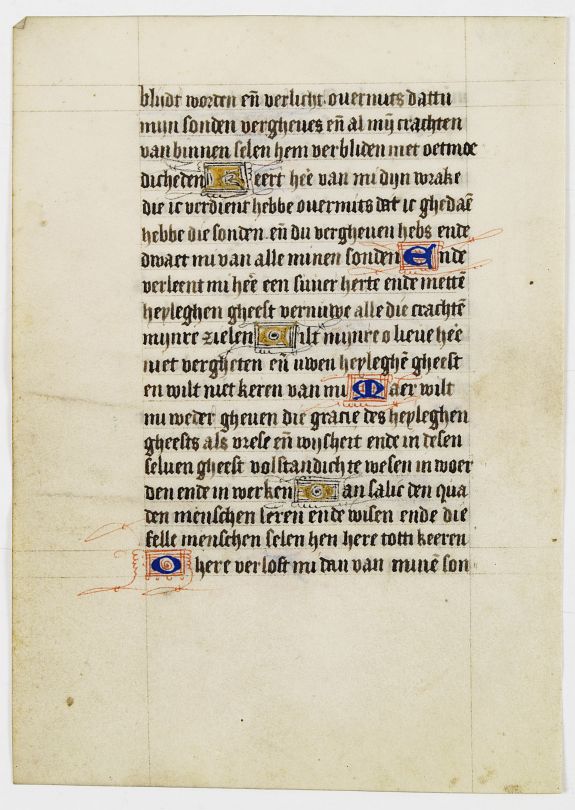 blijdt worden en̄ verlicht. ouermits dattu
mijn sonden vergheues en̄ al mij̄ crachten
van binnen selen hem verbliden met oetmoe
dicheden Keert hee̅ van mi dijn wrake
die ic verdient hebbe ouermits dat ic ghedae̅
hebbe die sonden en̄ du vergheuen hebs ende
dwaet mi van alle minen sonden Ende
verleent mi hee̅ een suuer herte ende mette̅
heyleghen gheest vernuwe alle die crachte̅
mijnre zielen Wilt mijnre o lieue hee̅
niet vergheten en̄ uwen heyleghe̅ gheest
en wilt niet keren van mi Maer wilt
mi weder gheuen die gracie des heyleghen
gheests als vrese en̄ wijsheit ende in desen
seluen gheest volstandich te wesen in woer
den ende in werken Dan salic den qua
den menschen leren ende wisen ende die
felle menschen selen hen here totti keeren
O here verlost mi dan van mine̅ son